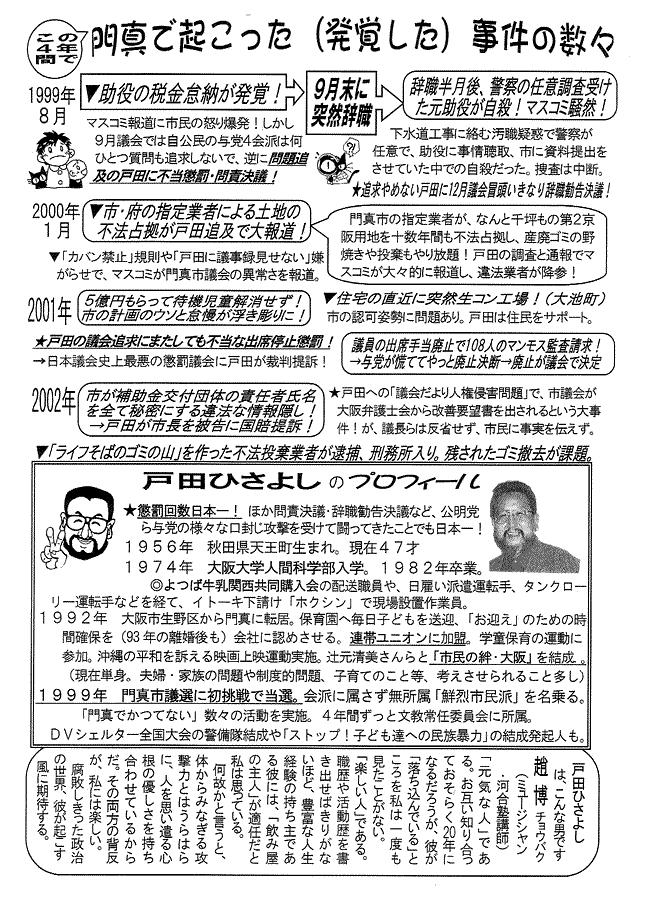 この
４年
間で
門真で起こった（発覚した）事件の数々
1999年
８月
▼助役の税金怠納が発覚！
9月末に
突然辞職
辞職半月後、警察の任意調査受け
た元助役が自殺！マスコミ騒然！
マスコミ報道に市民の怒り爆発！しかし
９月議会では自公民の与党4会派は何
ひとつ質問も追求しないで、逆に問題追
及の戸田に不当懲罰・問責決議！
下水道工事に絡む汚職疑惑で警察が
任意で、助役に事情聴取、市に資料提出を
させていた中での自殺だった。捜査は中断。
★追求やめない戸田に12月議会冒頭いきなり辞職勧告決議！
2000年
１月
▼市・府の指定業者による土地の
不法占拠が戸田追及で大報道！
門真市の指定業者が、なんと千坪もの第2京
阪用地を十数年間も不法占拠し、産廃ゴミの野
焼きや投棄もやり放題！戸田の調査と通報でマ
スコミが大々的に報道し、違法業者が降参！
▼「カバン禁止」規則や「戸田に議事録見せない」嫌
がらせで、マスコミが門真市議会の異常さを報道。
2001年
５億円もらって待機児童解消せず！
市の計画のウソと怠慢が浮き彫りに！
▼住宅の直近に突然生コン工場！（大池町）
市の認可姿勢に問題あり。戸田は住民をサポート。
★戸田の議会追求にまたしても不当な出席停止懲罰！
→日本議会史上最悪の懲罰議会に戸田が裁判提訴！
議員の出席手当廃止で108人のマンモス監査請求！
→与党が慌ててやっと廃止決断→廃止が議会で決定
2002年
市が補助金交付団体の責任者氏名
を全て秘密にする違法な情報隠し！
→戸田が市長を被告に国賠提訴！
★戸田への「議会だより人権侵害問題」で、市議会が
大阪弁護士会から改善要望書を出されるという大事
件！が、議長らは反省せず、市民に事実を伝えず。
▼「ライフそばのゴミの山」を作った不法投棄業者が逮捕、刑務所入り。残されたゴミ撤去が課題。
戸田ひさよしのプロフィール
★懲罰回数日本一！ ほか問責決議・辞職勧告決議など、公明党
ら与党の様々な口封じ攻撃を受けて闘ってきたことでも日本一！
１９５６年　秋田県天王町生まれ。現在４７才
１９７４年　大阪大学人間科学部入学。１９８２年卒業。
◎よつば牛乳関西共同購入会の配送職員や、日雇い派遣運転手、タンクロー
リー運転手などを経て、イトーキ下請け「ホクシン」で現場設置作業員。
１９９２年　大阪市生野区から門真に転居。保育園へ毎日子どもを送迎、「お迎え」のための時
間確保を（93年の離婚後も）会社に認めさせる。連帯ユニオンに加盟。学童保育の運動に
参加。沖縄の平和を訴える映画上映運動実施。辻元清美さんらと「市民の絆・大阪」を結成。
（現在単身。夫婦・家族の問題や制度的問題、子育てのこと等、考えさせられること多し）
１９９９年　門真市議選に初挑戦で当選。会派に属さず無所属「鮮烈市民派」を名乗る。
「門真でかつてない」数々の活動を実施。４年間ずっと文教常任委員会に所属。
ＤＶシェルター全国大会の警備隊結成や「ストップ！子ども達への民族暴力」の結成発起人も。
戸田ひさよし
は、こんな男です
趙 博 チョウバク
（ミュージシャン
・河合塾講師）
「元気な人」であ
る。お互い知り合っ
ておそらく20年に
なるだろうが、彼が
「落ち込んでいる」と
ころを私は一度も
見たことがない。
「楽しい人」である。
職歴や活動歴を書
き出せばきりがな
いほど、豊富な人生
経験の持ち主であ
る彼には、「飲み屋
の主人」が適任だと
私は思っている。
何故かと言うと、
体からみなぎる攻
撃力とはうらはら
に、人を思い遣る心
根の優しさを持ち
合わせているから
だ。その両方の背反
が、私には楽しい。
腐敗しきった政治
の世界、彼が起こす
風に期待する。